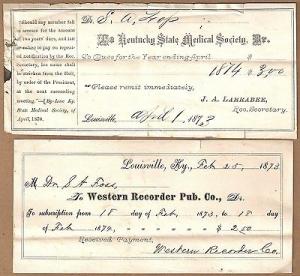 "Should any member fail
in arrears for his annual
dues two years' dues, and fail
or refuse to pay on repeat-
ed notification by the Rec.
Secretary, his name shall
be stricken from the Roll,
by order of the President,
at the next succeeding
meeting."—By-laws Ky.
State Medical Society, of
April, 1870.
Dr. S. A. Foss
To Kentucky State Medical Society, Dr.
To Dues for the Year ending April
1874 $3.00
Please remit immediately,
J. A. LARRABEE,
Rec. Secretary.
Louisville, April 1 1873
Louisville, Ky., Feb 25, 1873
M Dr. S A Foss
To Western Recorder Pub. Co., Dr.
To subscription from 18 day of Feb, 1873, to 18 day
of Feb 1874, $ 2.50
Received Payment,
Western Recorder Co.